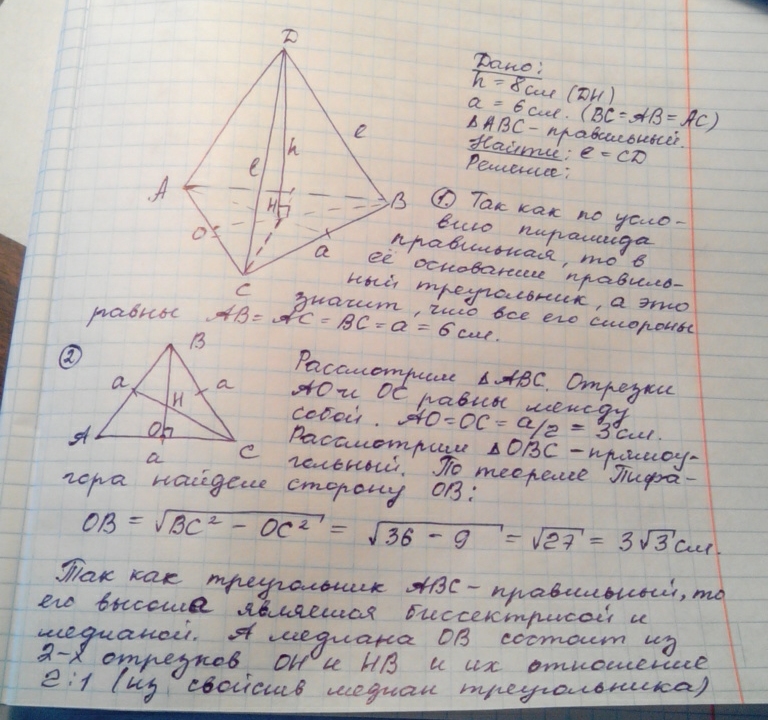 D
Дано:
h = 8 см (DH)
a = 6 см. (BC = AB = AC)
△ABC - правильный.
Найти: e = CD
Решение:
e
e
h
A
H
B
O
a
C
① Так как по усло-
вию пирамида
правильная, то в
её основание правиль-
ный треугольник, а это
значит, что все его стороны
равны AB = AC = BC = a = 6 см.
②
B
a
H
a
A
O
C
a
Рассмотрим △ABC. Отрезки
AO и OC равны между
собой. AO = OC = a/2 = 3 см.
Рассмотрим △OBC - прямоу-
гольный. По теореме Пифа-
гора найдем сторону OB:
OB = √BC² - OC² = √36 - 9 = √27 = 3√3 см.
Так как треугольник ABC - правильный, то
его высота является биссектрисой и
медианой. А медиана OB состоит из
2-х отрезков OH и HB и их отношение
2:1 (из свойств медиан треугольника)